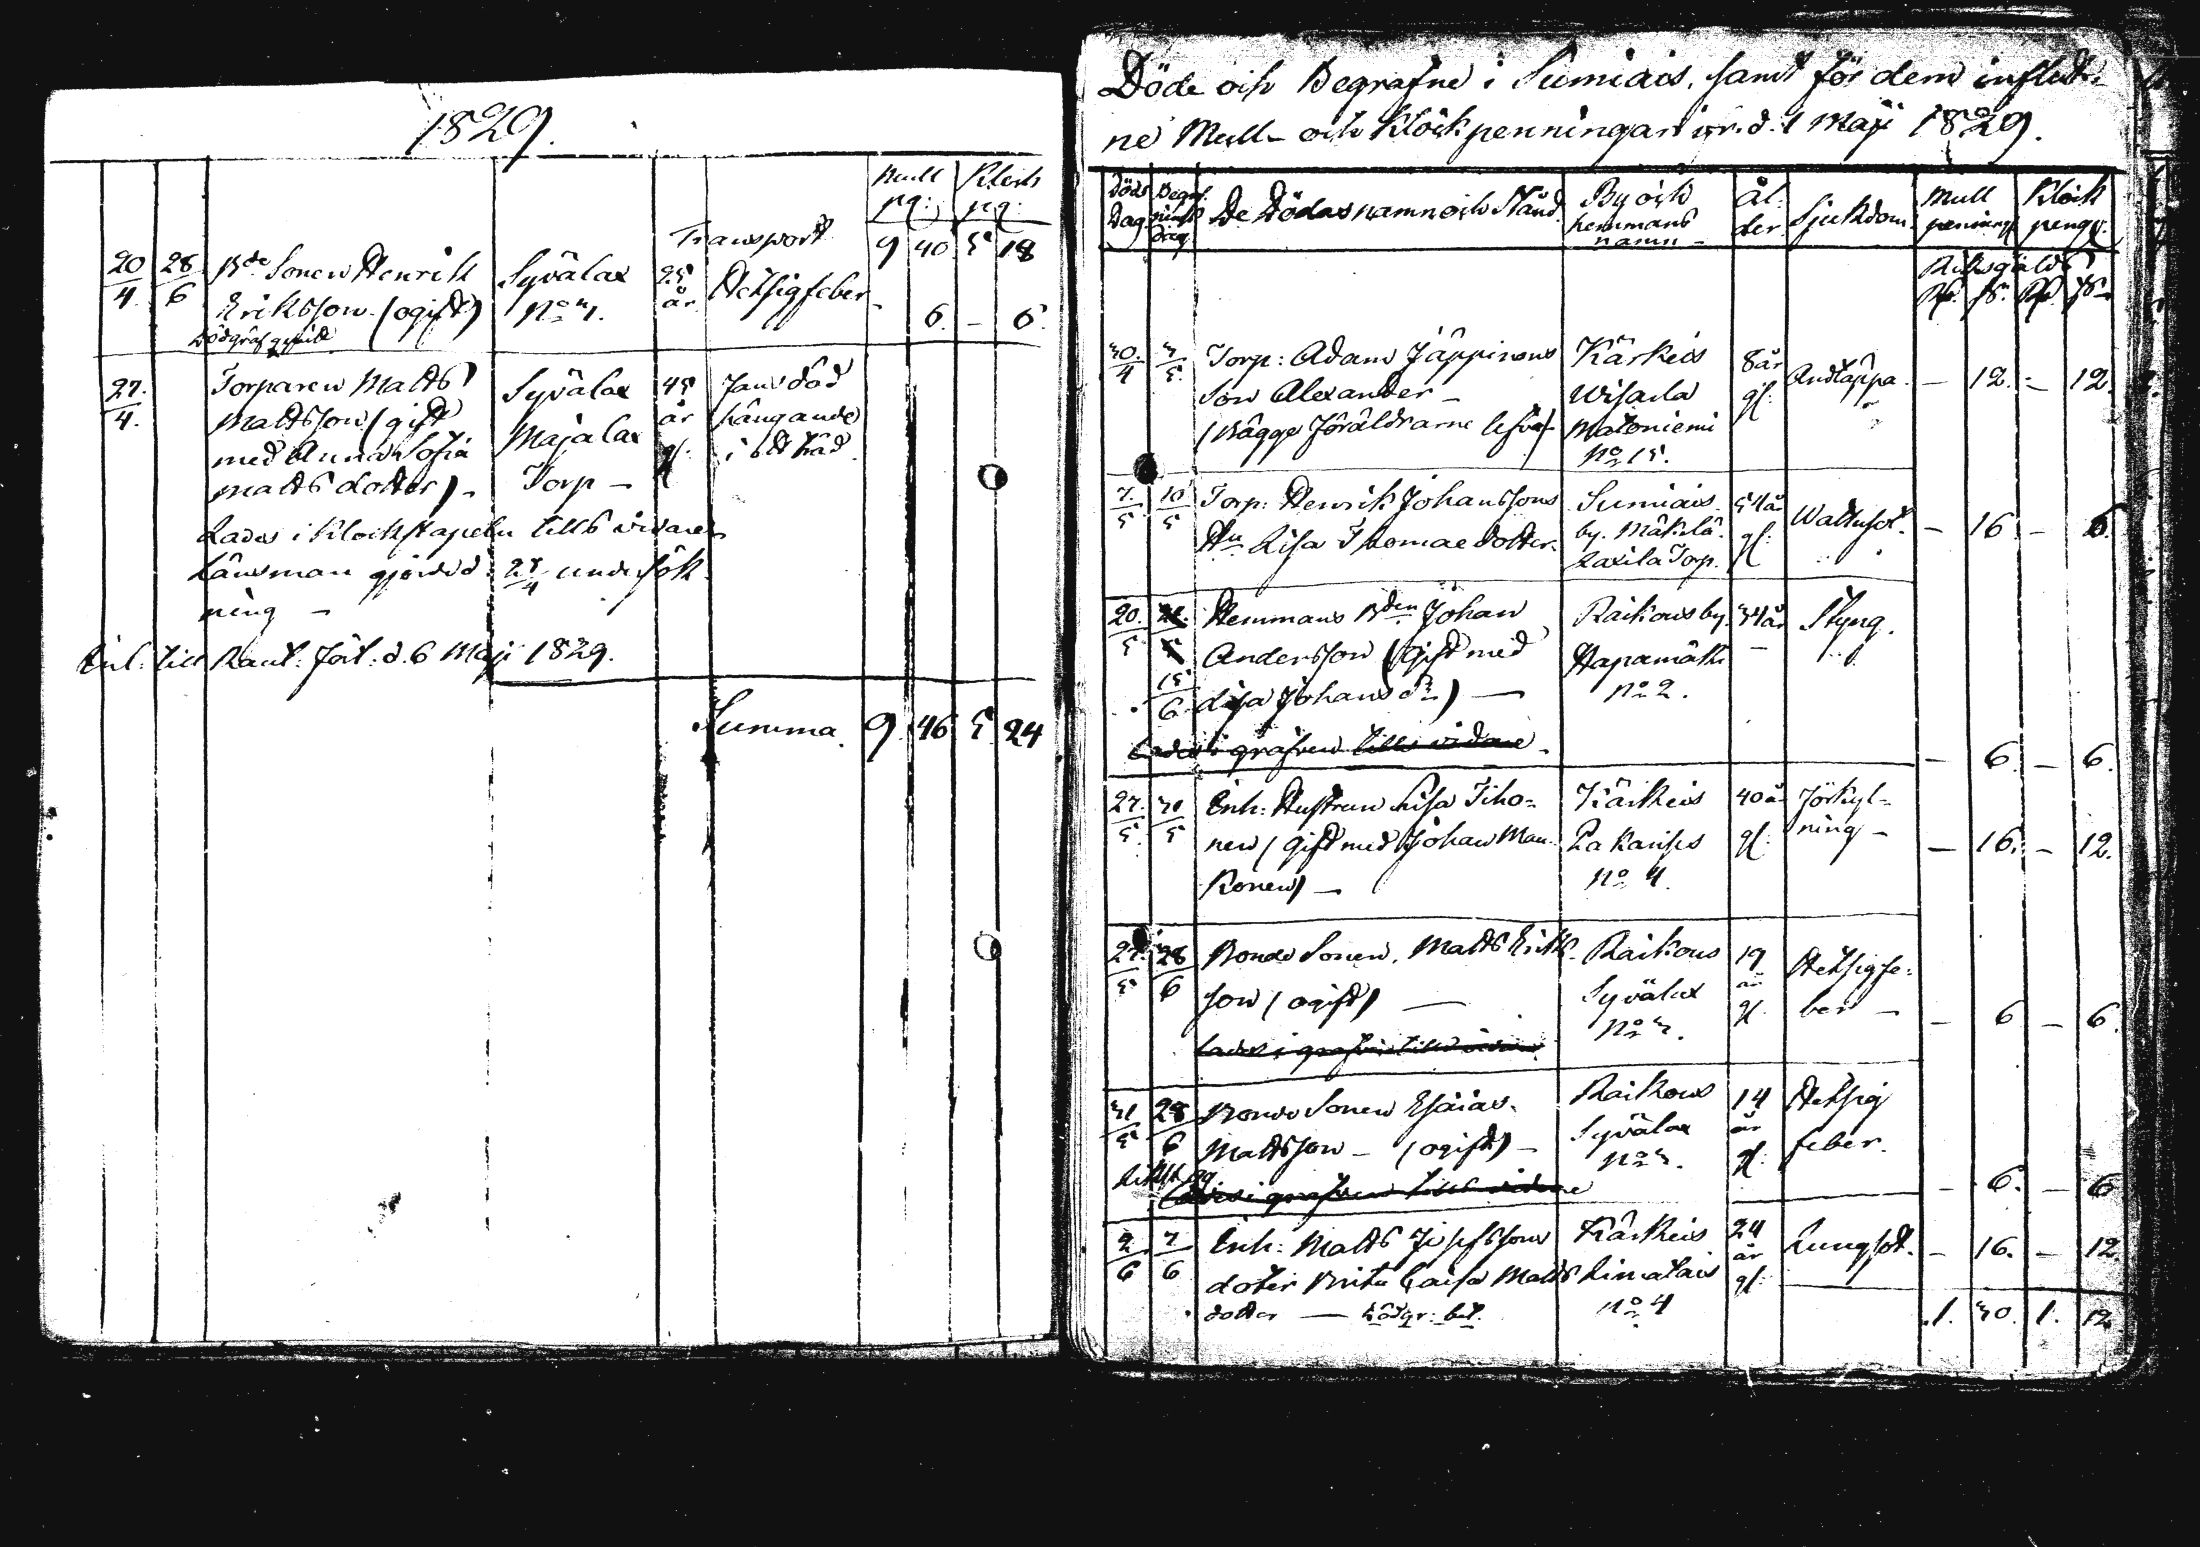 1829.
Mull Klock
pg: pg:
Transport 9 40 5 18
20/4. 28/6 Bde Sonen Henrik Syvälax 25 Hetsigfeber
Eriksson (ogift) No 3. år - 6. - 6.
27./4. Torparen Matts Syvälax 45 Fans död
Mattsson (gift Majalax år hängande
med Anna Sofia Torp - gl: i ett träd.
Matts dotter) -
Lades i Klockstapeln tills vidare
Länsman gjorde d. 28/4 undersök
ning -
till d. 6 Maji 1829.
Summa. 9 46 5 24
Döde och Begrafne i Sumiais, samt för dem influt-
ne Mull- och Klockpenningar fr. d. 1 Maji 1829.
Döds Dag. Begrafnings dag De Dödas namn och Stånd. By och hemmans namn - Ål-der. Sjukdom. Mull penning Klock pengr.
Riksgälds
Rd. sk. Rd. sk.
30./4 3/5. Torp: Adam Jäppinens Kärkeis 8 år Andtäppa. - 12. - 12.
Son Alexander - Wisala gl:
(Bägge Föräldrarne lefva) Matoniemi
No 15.
7./5 10/5 Torp: Henrik Johanssons Sumiais 54 år Wattusot. - 16 - 6.
Hu Lisa Thomae dotter. by. Mäkilä gl:
Laxila Torp.
20./5 15/6 Hemmans Bden Johan Raikous by. 34 år Styng.
Andersson (gift med Hapamäki
Lisa Johans dr) - No 2.
Lades i grafven tills vidare. - 6. - 6.
27./5. 30/5 Enh: Hustrun Lisa Tiho- Kärkeis 40 år Förkyl-
nen (gift med Johan Man- gl: ning - - 16. - 12.
konen) - No 4.
27./5 28/6 Bonde Sonen. Matts Eriks- Raikous 19 Hetsigfe-
son (ogift) - Syvälax år ber - - 6 - 6.
No 3. gl.
Lades i grafven tills vidare.
31/5 28/6 Bonde Sonen Esaias Raikous 14 Hetsig
Mattsson - (ogift) - Syvälax år feber.
No 3. gl:
Lades i grafven tills vidare - 6. - 6
2/6 7/6 Enh: Matts Josefssons Kärkeis 24 Lungsot. - 16. - 12.
doter Brita Caisa Matts Limatais år
dotter - No 4 gl:
1. 30. 1. 12